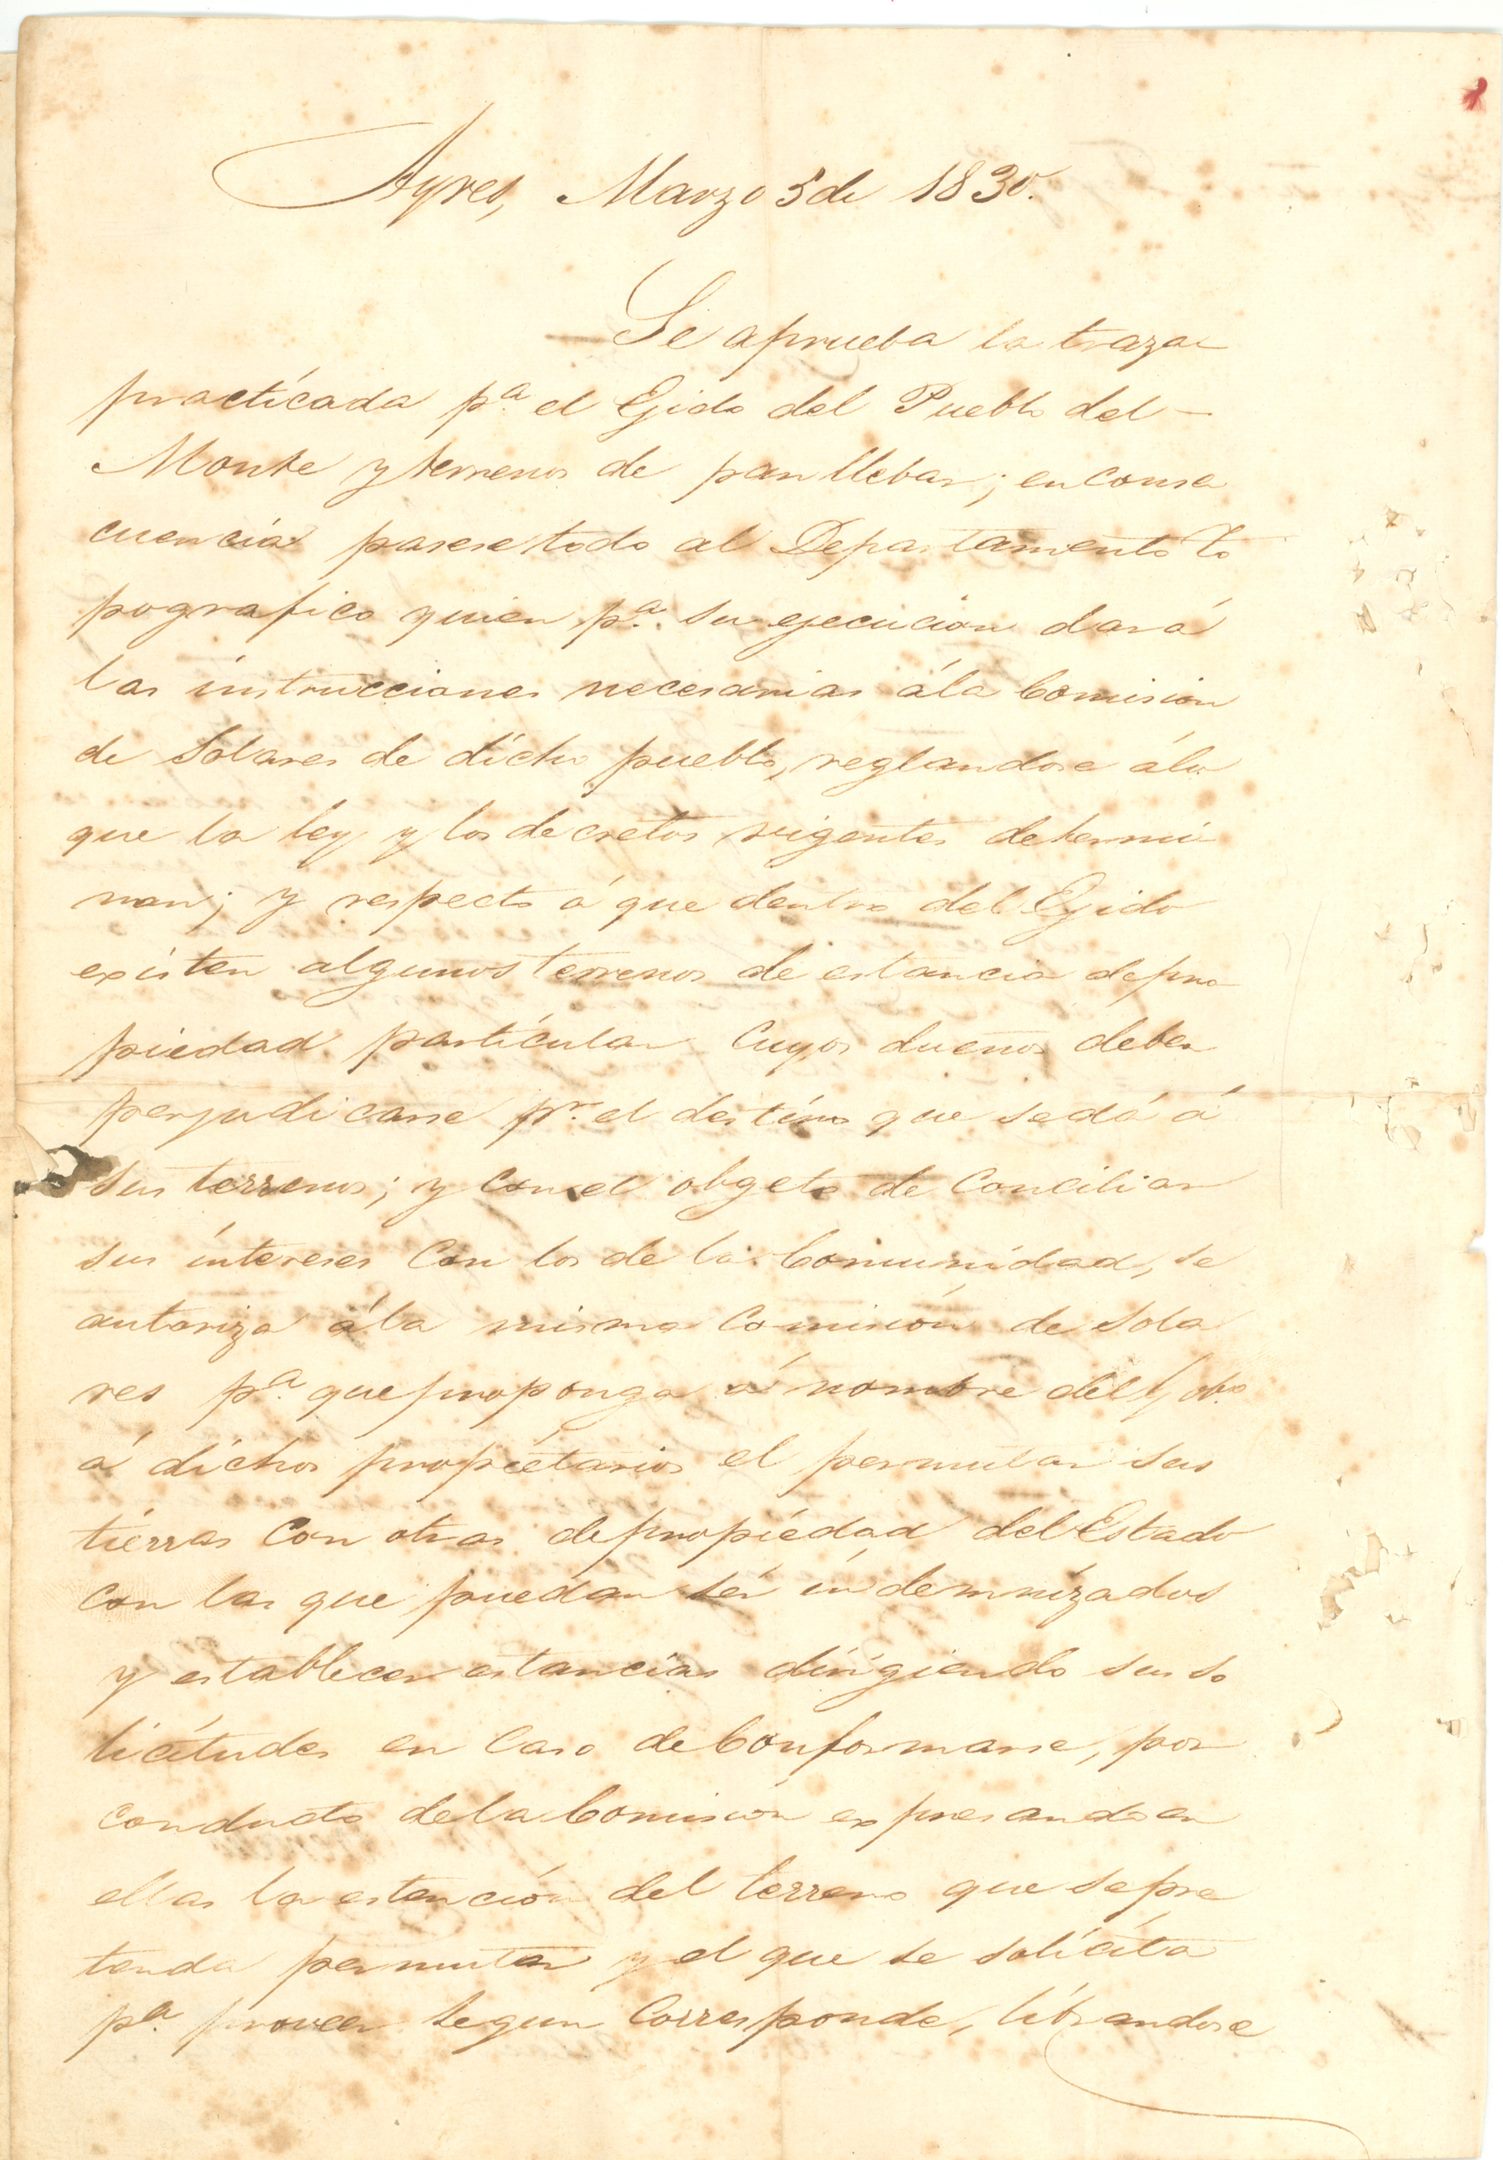 Ayres, Marzo 5 de 1830.
Se aprueba la traza
practicada pa. el Ejido del Pueblo del
Monte y terrenos de pan llebar; en conse
cuencia pasese todo al Departamento To
pografico quien pa. su ejecucion dará
las instrucciones necesarias ála Comision
de Solares de dicho pueblo, reglandose álo
que la ley y los decretos vigentes determi
nan; y respecto á que dentro del Ejido
existen algunos terrenos de estancia de pro
piedad particular cuyos dueños deben
perjudicarse pr. el destino que se dá á
sus terrenos; y con el obgeto de Conciliar
sus intereses Con los de la Comunidad, se
autoriza ála misma Comisión de Sola
res pa. que proponga á nombre del Gobo.
á dichos propietarios el permutar sus
tierras Con otras de propiedad del Estado
Con las que puedan ser indemnizados
y establecer estancias dirigiendo sus so
licitudes en Caso de Conformarse, por
conducto de la Comision expresando en
ellas la estención del terreno que se pre
tenda permutar y el que se solicita
pa. proveer segun Corresponde, librandose